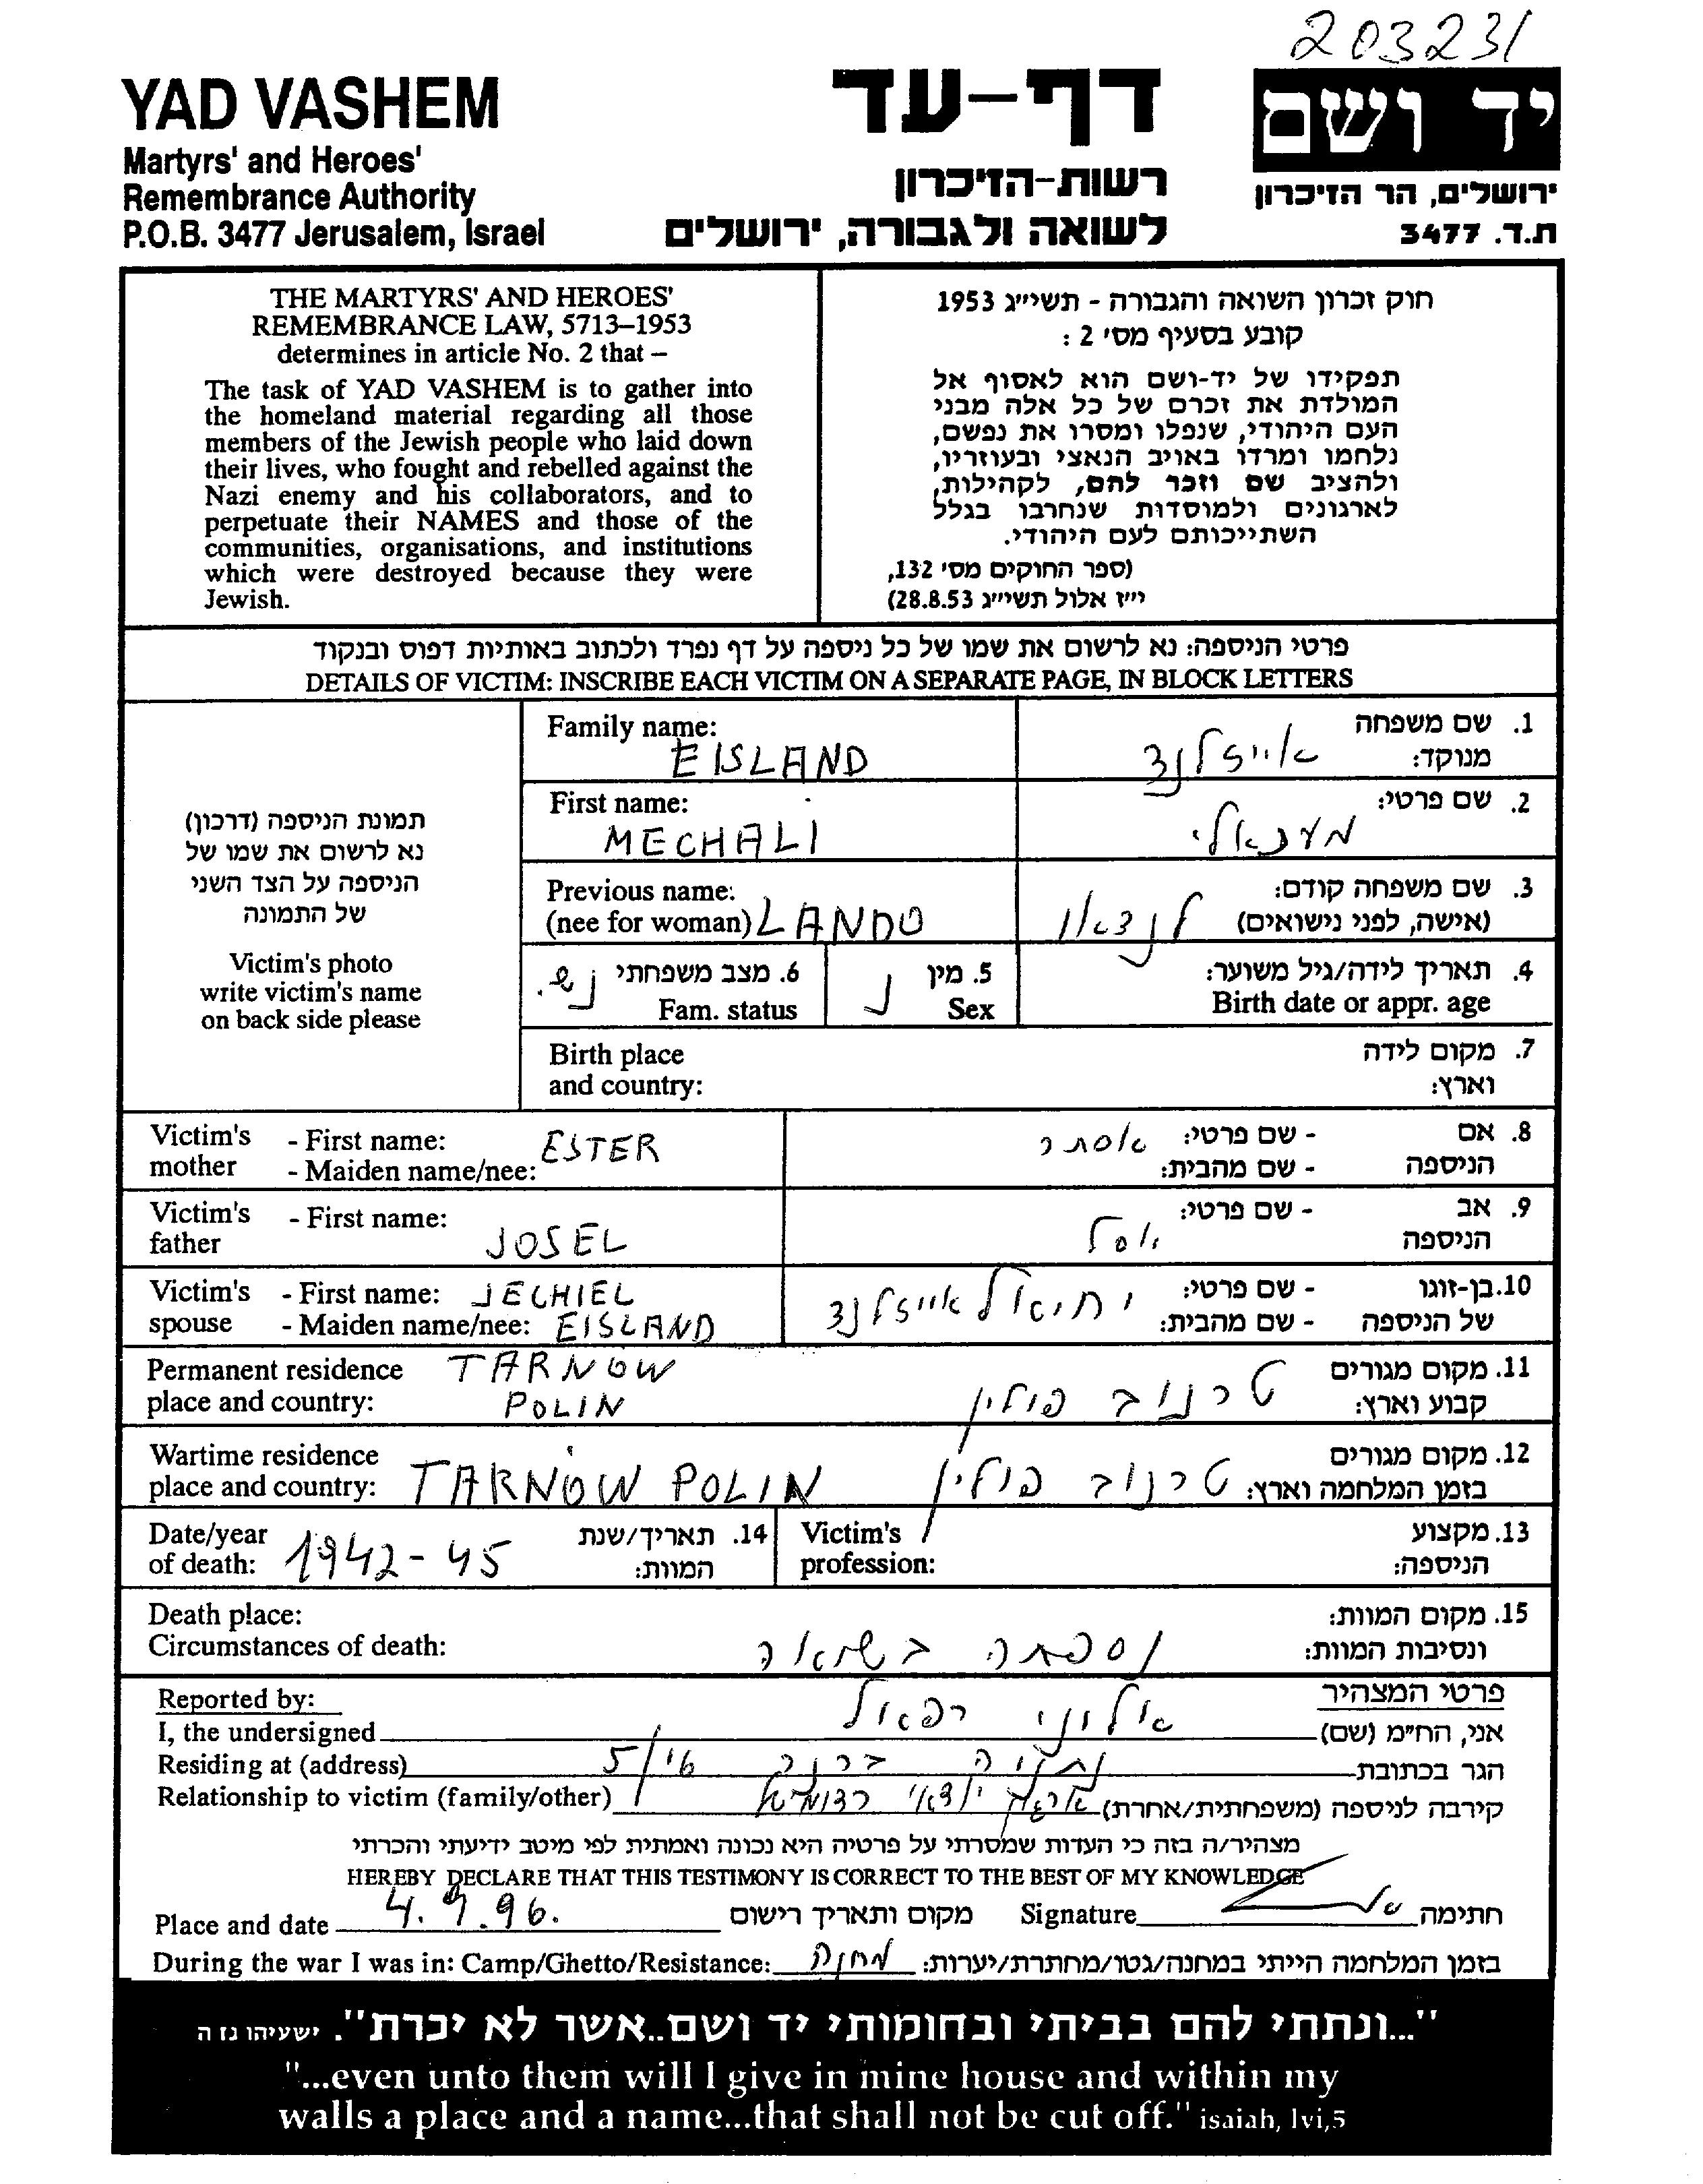 203231
YAD VASHEM
Martyrs' and Heroes'
Remembrance Authority
P.O.B. 3477 Jerusalem, Israel
דף-עד
רשות-הזיכרון
לשואה ולגבורה, ירושלים
יד ושם
ירושלים, הר הזיכרון
ת.ד. 3477
THE MARTYRS' AND HEROES'
REMEMBRANCE LAW, 5713–1953
determines in article No. 2 that –
The task of YAD VASHEM is to gather into
the homeland material regarding all those
members of the Jewish people who laid down
their lives, who fought and rebelled against the
Nazi enemy and his collaborators, and to
perpetuate their NAMES and those of the
communities, organisations, and institutions
which were destroyed because they were
Jewish.
חוק זכרון השואה והגבורה - תשי״ג 1953
קובע בסעיף מס' 2 :
תפקידו של יד-ושם הוא לאסוף אל
המולדת את זכרם של כל אלה מבני
העם היהודי, שנפלו ומסרו את נפשם,
נלחמו ומרדו באויב הנאצי ובעוזריו,
ולהציב שם וזכר להם, לקהילות,
לארגונים ולמוסדות שנחרבו בגלל
השתייכותם לעם היהודי.
(ספר החוקים מס' 132,
י״ז אלול תשי״ג 28.8.53)
פרטי הניספה: נא לרשום את שמו של כל ניספה על דף נפרד ולכתוב באותיות דפוס ובנקוד
DETAILS OF VICTIM: INSCRIBE EACH VICTIM ON A SEPARATE PAGE, IN BLOCK LETTERS
תמונת הניספה (דרכון)
נא לרשום את שמו של
הניספה על הצד השני
של התמונה
Victim's photo
write victim's name
on back side please
Family name:
EISLAND
1. שם משפחה
מנוקד:
אייזלנד
First name:
MECHALI
2. שם פרטי:
Previous name:
(nee for woman) LANDO
3. שם משפחה קודם:
(אישה, לפני נישואים)
לנדאו
6. מצב משפחתי נש.
Fam. status
5. מין נ
Sex
4. תאריך לידה/גיל משוער:
Birth date or appr. age
Birth place
and country:
7. מקום לידה
וארץ:
Victim's mother - First name: ESTER
- Maiden name/nee:
8. אם הניספה - שם פרטי: אסתר
- שם מהבית:
Victim's father - First name:
JOSEL
9. אב הניספה - שם פרטי:
יוסל
Victim's spouse - First name: JECHIEL
- Maiden name/nee: EISLAND
10. בן-זוגו של הניספה - שם פרטי:
- שם מהבית:
יחיאל אייזלנד
Permanent residence TARNOW
place and country: POLIN
11. מקום מגורים
קבוע וארץ:
טרנוב פולין
Wartime residence
place and country: TARNOW POLIN
12. מקום מגורים
בזמן המלחמה וארץ: טרנוב פולין
Date/year
of death: 1942-45
14. תאריך/שנת
המוות:
Victim's
profession:
13. מקצוע
הניספה:
Death place:
Circumstances of death:
15. מקום המוות:
ונסיבות המוות:
נספתה בשואה
Reported by:
פרטי המצהיר
I, the undersigned אלוני רפאל אני, הח״מ (שם)
Residing at (address) 5/16 הגר בכתובת
Relationship to victim (family/other) קירבה לניספה (משפחתית/אחרת)
מצהיר/ה בזה כי העדות שמסרתי על פרטיה היא נכונה ואמתית לפי מיטב ידיעתי והכרתי
HEREBY DECLARE THAT THIS TESTIMONY IS CORRECT TO THE BEST OF MY KNOWLEDGE
Place and date 4.9.96. מקום ותאריך רישום Signature חתימה
During the war I was in: Camp/Ghetto/Resistance: מחנה בזמן המלחמה הייתי במחנה/גטו/מחתרת/יערות:
"...ונתתי להם בביתי ובחומותי יד ושם..אשר לא יכרת". ישעיהו נז ה
"...even unto them will I give in mine house and within my
walls a place and a name...that shall not be cut off." isaiah, lvi,5